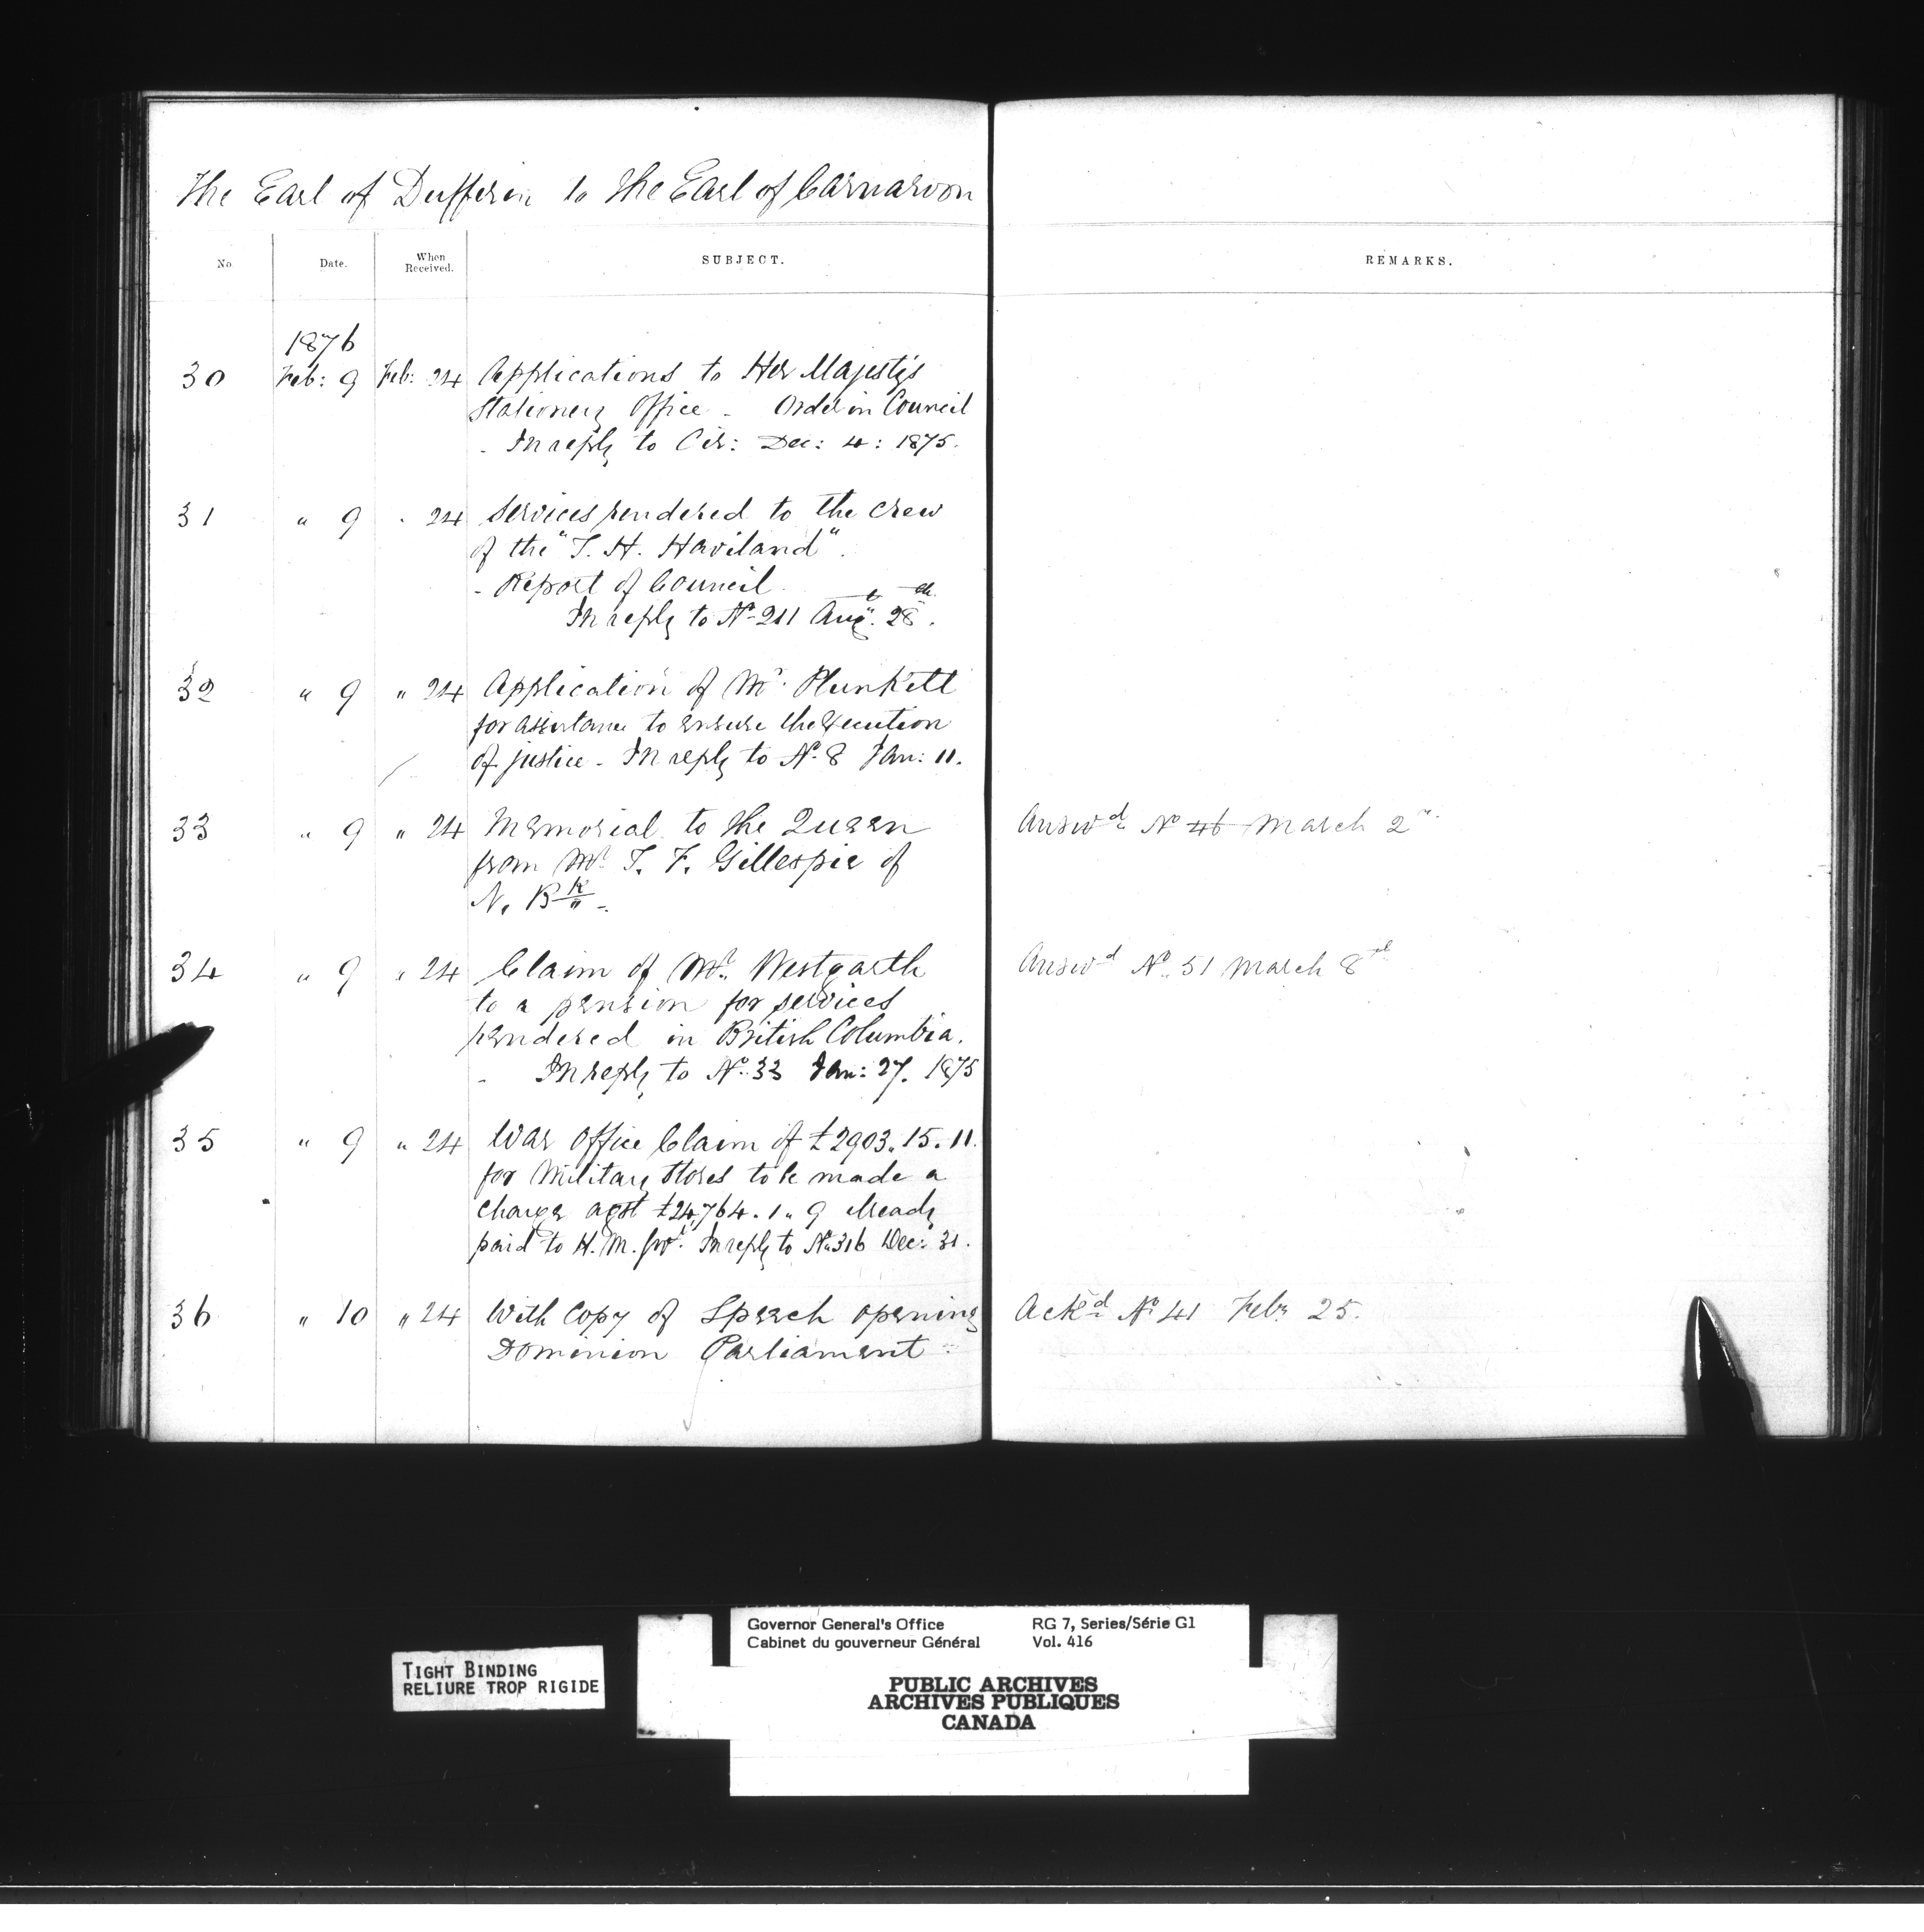 The Earl of Dufferin to The Earl of Carnarvon
No. Date. When Received. SUBJECT. REMARKS.
1876
30 Feb: 9 Feb: 24 Applications to Her Majesty's
Stationery Office - Order in Council
- In reply to Cir: Dec: 4: 1875.
31 " 9 " 24 Services rendered to the crew
of the "T. H. Haviland".
- Report of Council
In reply to No 211 Augt. 28th.
32 " 9 " 24 Application of Mr. Plunkett
for assistance to ensure the execution
of justice - In reply to No 8 Jan: 11.
33 " 9 " 24 Memorial to the Queen Answd No 46 March 2
from Mr T. F. Gillespie of
N. Bk -
34 " 9 " 24 Claim of Mr. Westgarth Answd No 51 March 8th
to a pension for services
rendered in British Columbia.
- In reply to No 33 Jan: 27. 1875
35 " 9 " 24 War Office Claim of £2903.15.11.
for Military Stores to be made a
charge agst £24,764.1.9 already
paid to H. M. Govt. In reply to No 316 Dec: 31.
36 " 10 " 24 With Copy of Speech opening Ackd No 41 Feby 25.
Dominion Parliament
Governor General's Office RG 7, Series/Série G1
Cabinet du gouverneur Général Vol. 416
TIGHT BINDING
RELIURE TROP RIGIDE
PUBLIC ARCHIVES
ARCHIVES PUBLIQUES
CANADA